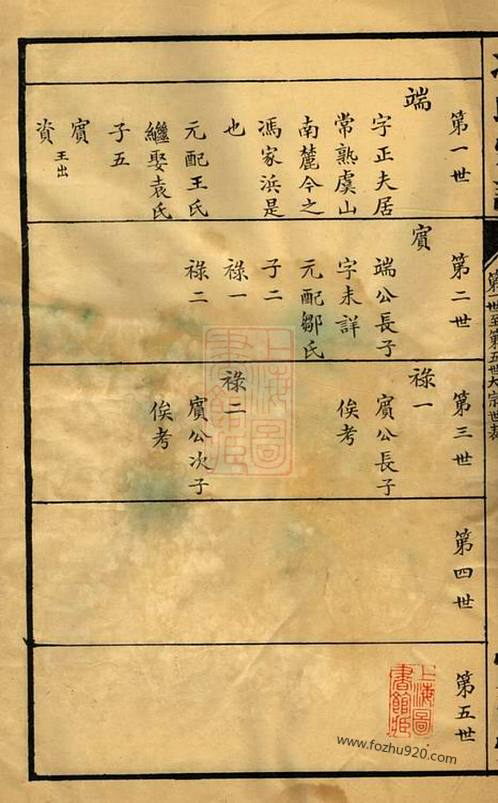 第一世
端
字正夫居
常熟虞山
南麓今之
馮家浜是
也
元配王氏
繼娶袁氏
子五
賔
王出
資
第二世
賔
端公長子
字未詳
元配鄒氏
子二
祿一
祿二
第三世
祿一
賔公長子
俟考
祿二
賔公次子
俟考
第四世
第五世
第一世至第五世大宗世表
上海圖
書館藏
上海圖
書館藏
www.fozhu920.com